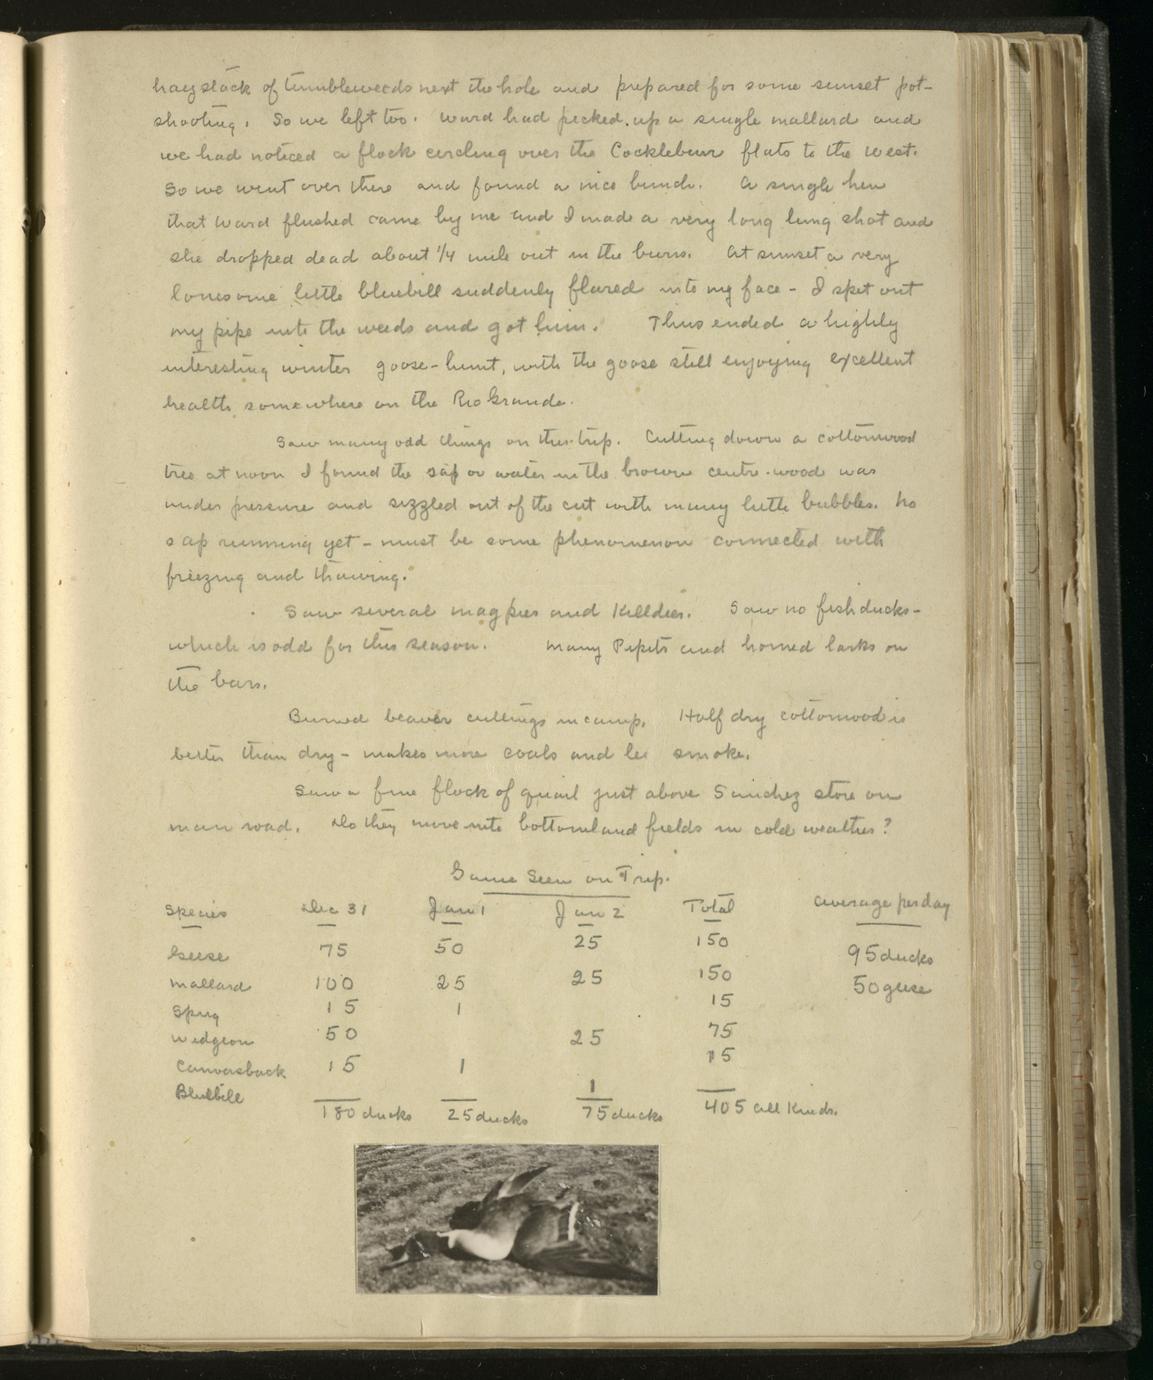 haystack of tumbleweeds next the hole and prepared for some sunset pot-
shooting. So we left too. Ward had picked up a single mallard and
we had noticed a flock circling over the Cocklebur flats to the west.
So we went over there and found a nice bunch. A single hen
that Ward flushed came by me and I made a very long lung shot and
she dropped dead about 1/4 mile out in the burrs. At sunset a very
lonesome little bluebill suddenly flared into my face - I spit out
my pipe into the weeds and got him. Thus ended a highly
interesting winter goose-hunt, with the goose still enjoying excellent
health somewhere on the Rio Grande.
Saw many odd things on this trip. Cutting down a cottonwood
tree at noon I found the sap or water in the brown centre-wood was
under pressure and sizzled out of the cut with many little bubbles. No
sap running yet - must be some phenomenon connected with
freezing and thawing.
Saw several magpies and Killdies. Saw no fish ducks -
which is odd for this season. Many Pipits and horned larks on
the bars.
Burned beaver cuttings in camp. Half dry cottonwood is
better than dry - makes more coals and les smoke.
Saw a fine flock of quail just above Sanchez store on
main road. Do they move into bottomland fields in cold weather?
Game Seen on Trip.
Species Dec 31 Jan 1 Jan 2 Total average per day
Geese 75 50 25 150 95 ducks
Mallard 100 25 25 150 50 geese
Sprig 15 1 15
Widgeon 50 25 75
Canvasback 15 1 15
Bluebill 1
180 ducks 25 ducks 75 ducks 405 all kinds.